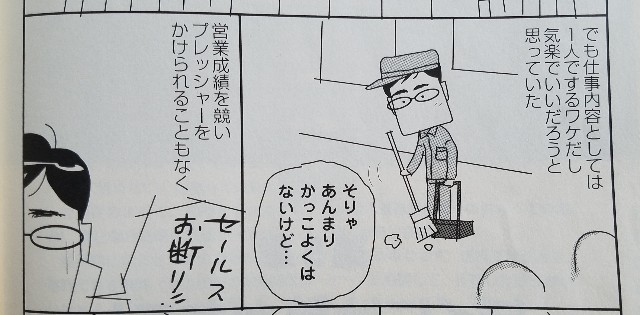 でも仕事内容としては
1人でするワケだし
気楽でいいだろうと
思っていた
そりゃ
あんまり
かっこよくは
ないけど…
営業成績を競い
プレッシャーを
かけられることもなく
セールス
お断り!!